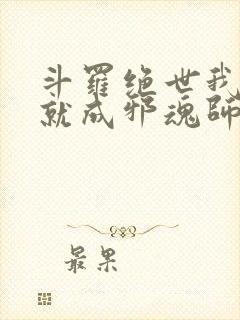 斗羅绝世我
就成邪魂師
最果